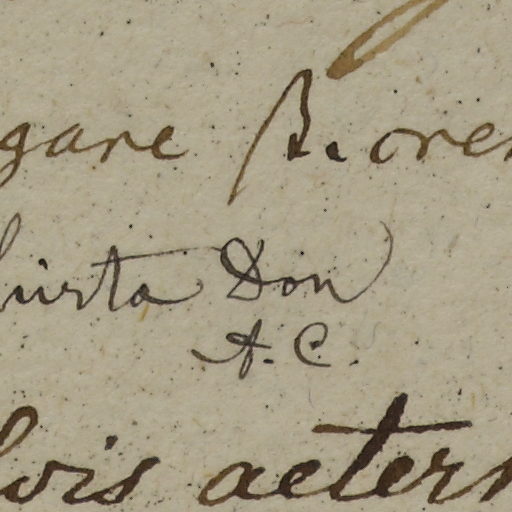 gare B. oren
hirta Don
A. C.
lvis aetern